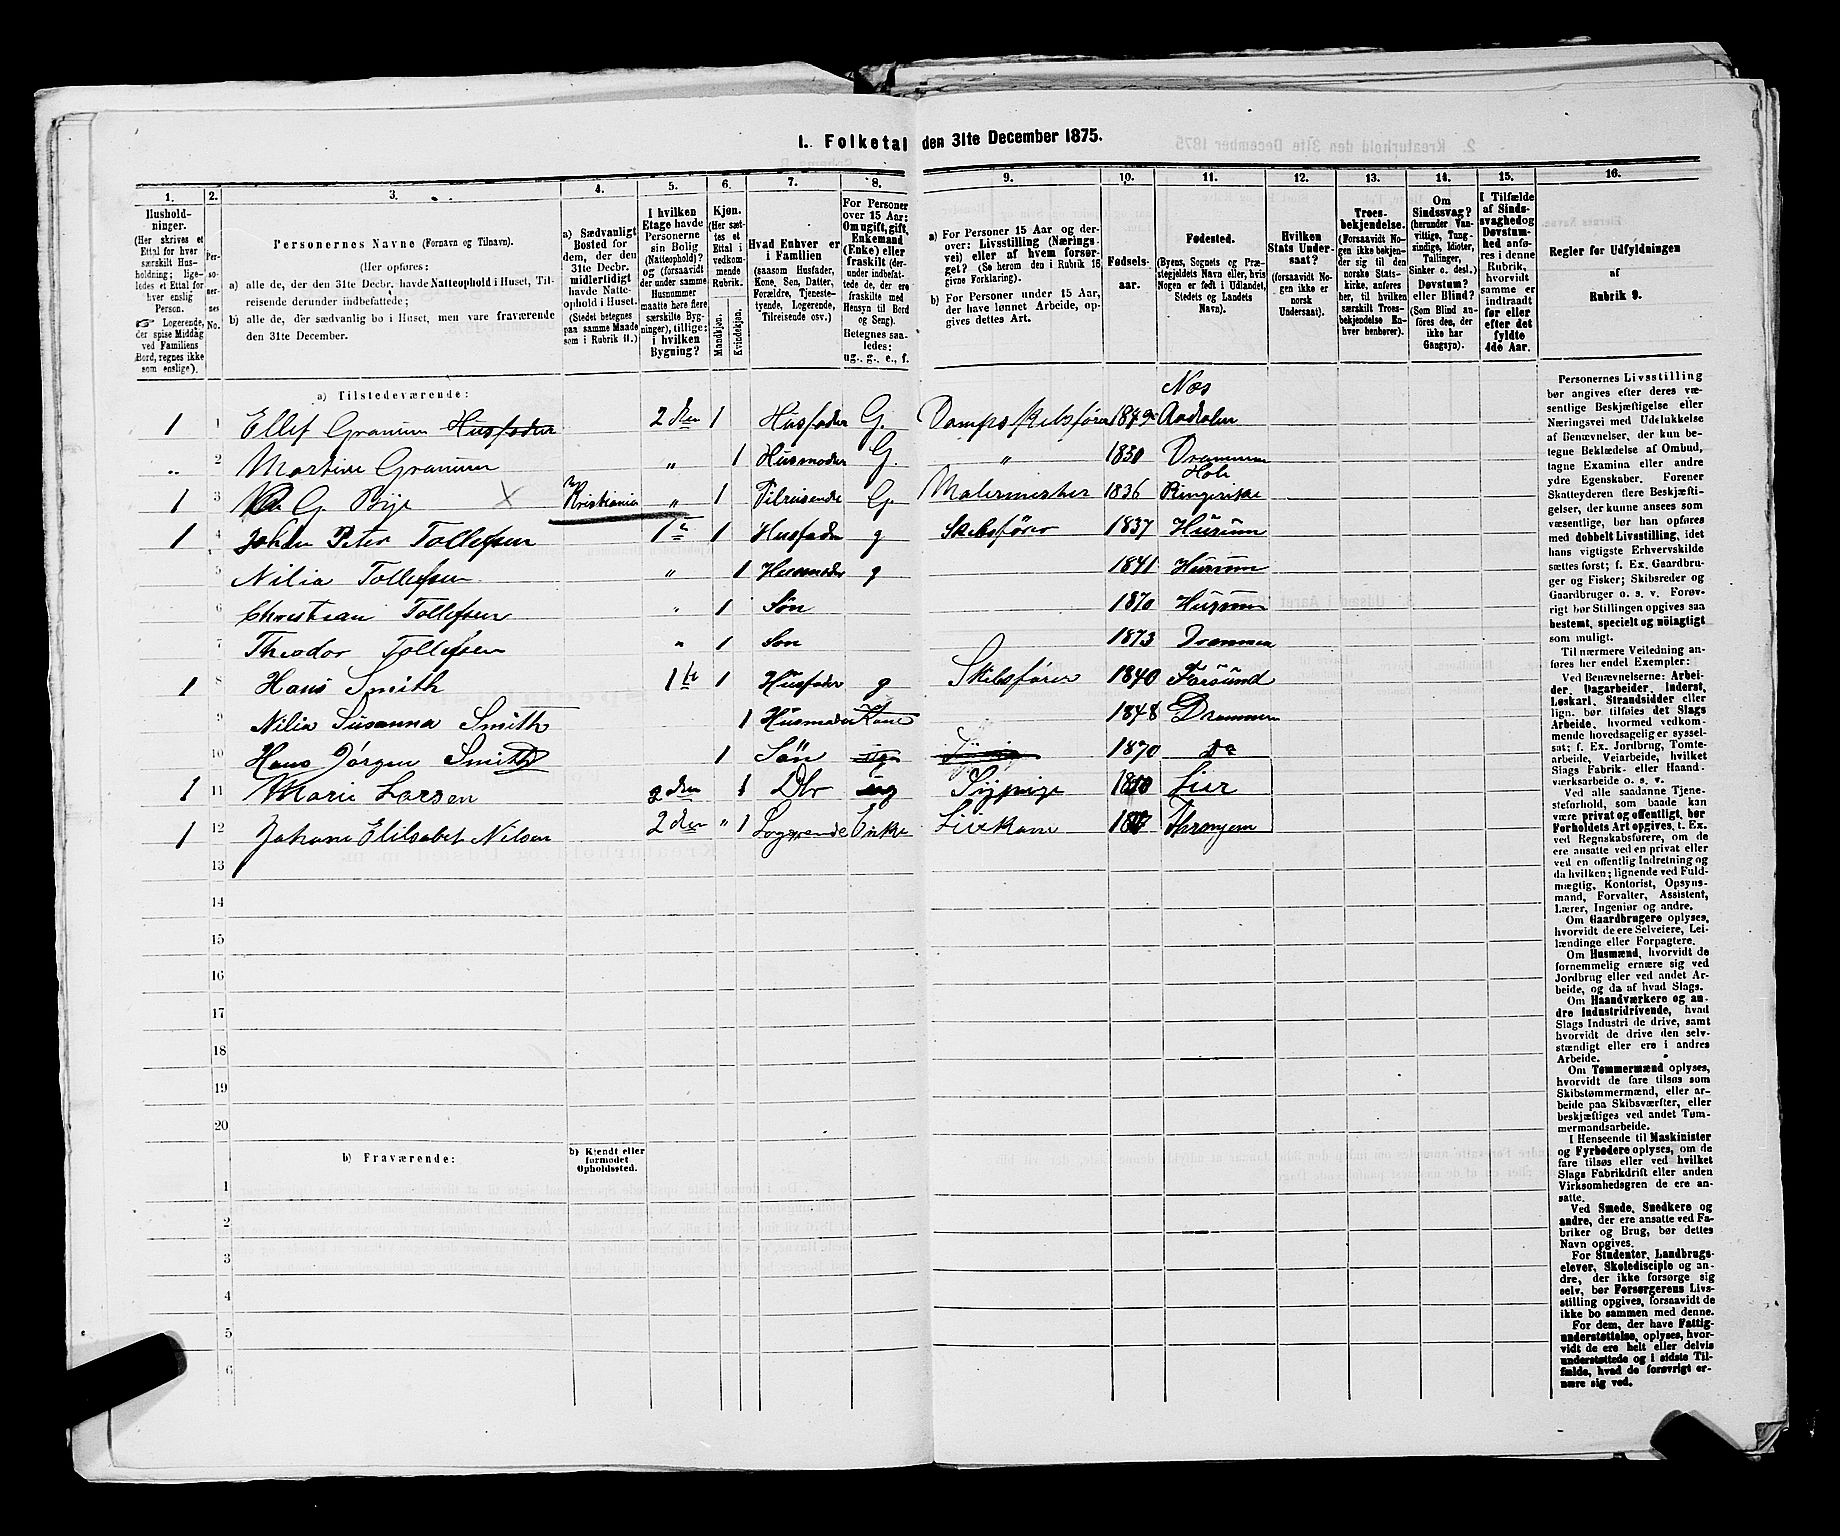 1. Folketal den 31te December 1875.
1. 2. 3. 4. 5. 6. 7. 8. 9. 10. 11. 12. 13. 14. 15. 16.
Hushold-
ninger.
(Her skrives et
Ettal for hver
særskilt Hus-
holdning; lige-
ledes et Ettal for
hver enslig
Person.
☞ Logerende,
der spise Middag
ved Familiens
Bord, regnes ikke
som enslige).
Per-
so-
ner-
nes-
No.
Personernes Navne (Fornavn og Tilnavn).
(Her opføres:
a) alle de, der den 31te Decbr. havde Natteophold i Huset, Til-
reisende derunder indbefattede;
b) alle de, der sædvanlig bo i Huset, men vare fraværende
den 31te December.
a) Sædvanligt
Bosted for
dem, der den
31te Decbr.
midlertidigt
havde Natte-
ophold i Huset.
(Stedet betegnes
paa samme Maade
som i Rubrik 11.)
I hvilken
Etage havde
Personerne
sin Bolig
(Natteophold)?
og (forsaavidt
der under samme
Husnummer
maatte høre flere
særskilte Byg-
ninger), tillige:
i hvilken
Bygning?
Kjøn.
(Her sæt-
tes et
Ettal i
vedkom-
mende
Rubrik.
Mandkjøn.
Kvindekjøn.
Hvad Enhver er
i Familien
(saasom Husfader,
Kone, Søn, Datter,
Forældre, Tjeneste-
tyende, Logerende,
Tilreisende osv.)
For Personer
over 15 Aar:
Om ugift, gift,
Enkemand
(Enke) eller
fraskilt (der-
under indbefat-
tede de, der ere
fraskilte med
Hensyn til Bord
og Seng).
Betegnes saa-
ledes:
ug., g., e., f.
a) For Personer 15 Aar og der-
over: Livsstilling (Nærings-
vei) eller af hvem forsør-
get? (Se herom den i Rubrik 16
givne Forklaring).
b) For Personer under 15 Aar,
der have lønnet Arbeide, op-
gives dettes Art.
Fødsels-
aar.
Fødested.
(Byens, Sognets og Præ-
stegjeldets Navn eller, hvis
Nogen er født i Udlandet,
Stedets og Landets
Navn).
Hvilken
Stats Under-
saat?
(forsaavidt No-
gen ikke er
norsk
Undersaat).
Troes-
bekjendelse.
(Forsaavidt No-
gen ikke bekjen-
der sig til den
norske Stats-
kirke, anføres
her, til hvilken
særskilt Troes-
bekjendelse En-
hver henhører).
Om
Sindssvag?
(herunder Van-
vittige, Tung-
sindige, Idioter,
Tullinger,
Sinker o. desl.)
Døvstum?
eller Blind?
(Som Blind an-
føres des, der
ikke har
Gangsyn).
I Tilfælde
af Sinds-
svaghed og
Døvstum-
hed anfø-
res i denne
Rubrik,
hvorvidt
samme er
indtraadt
før eller
efter det
fyldte
4de Aar.
Regler for Udfyldningen
af
Rubrik 9.
a) Tilstedeværende:
Næs
1 1 Ellef Granum Husfader 2den 1 Husfader G. Dampskibsfører 1849 Aadalen
" 2 Martine Granum " 1 Husmoder G. " 1850 Drammen
Hole
1 3 G. Bye × Kristiania " 1 Tilreisende G Malermester 1836 Ringerike
1 4 Johan Peter Tollefsen 1ste 1 Husfader g Skibsfører 1837 Hurum
5 Nilia Tollefsen " 1 Husmoder g 1841 Hurum
6 Christian Tollefsen " 1 Søn 1870 Hurum
7 Theodor Tollefsen " 1 Søn 1873 Drammen
1 8 Hans Smith 1ste 1 Husfader g Skibsfører 1840 Farsund
9 Nilia Susanna Smith 1 Husmoder Kone 1848 Drammen
10 Hans Jørgen Smith 1 Søn 1870 Do
1 11 Marie Larsen 2den 1 ug Sypige Lier
1 12 Johane Elilsabet Nilsen 2den " 1 Logerende Enke Thronjem
13
14
15
16
17
18
19
20
b) Fraværende: b) Kjendt eller
formodet
Opholdssted.
1
2
3
4
5
6
Personernes Livsstilling
bør angives efter deres væ-
sentlige Beskjæftigelse eller
Næringsvei med Udelukkelse
af Benævnelser, der kun be-
tegne Beklædelse af Ombud,
tagne Examina eller andre
ydre Egenskaber. Forener
Skatteyderen flere Beskjæfti-
gelser, der kunne ansees som
væsentlige, bør han opføres
med dobbelt Livsstilling, idet
hans vigtigste Erhvervskilde
sættes først; f. Ex. Gaardbru-
ger og Fisker; Skibsreder og
Gaardbruger o. s. v. Forøv-
rigt bør Stillingen opgives saa
bestemt, specielt og nöiagtigt
som muligt.
Til nærmere Veiledning an-
føres her endel Exempler:
Ved Benævnelserne: Arbei-
der, Dagarbeider, Inderst,
Løskarl, Strandsidder eller
lign. bør tilføies det Slags
Arbeide, hvormed vedkom-
mende hovedsagelig er syssel-
sat; f. Ex. Jordbrug, Tomte-
arbeide, Veiarbeide, hvilket
Slags Fabrik- eller Haand-
værksarbeide o. s. v.
Ved alle saadanne Tjene-
steforhold, som baade kan
være privat og offentlig, bør
Forholdets Art opgives, t. Ex.
ved Regnskabsførere, om de
ere ansatte ved en privat eller
ved en offentlig Indretning og
da hvilken; lignende ved Fuld-
mægtig, Kontorist, Opsyns-
mand, Forvalter, Assistent,
Lærer, Ingeniør og andre.
Om Gaardbrugere oplyses,
hvorvidt de ere Selveiere, Lei-
lændinge eller Forpagtere.
Om Husmænd, hvorvidt de
fornemmelig ernære sig ved
Jordbrug eller ved andet Ar-
beide, og da af hvad Slags.
Om Haandværkere og an-
dre Industridrivende, hvad
Slags Industri de drive, samt
hvorvidt de drive den selv-
stændigt eller ere i andres
Arbeide.
Om Tømmermænd oplyses,
hvorvidt de fare tilsøs som
Skibstømmermænd, eller ar-
beide paa Skibsværfter, eller
beskjæftiges ved andet Tøm-
mermandsarbeide.
I Henseende til Maskinister
og Fyrbødere oplyses, om de
fare tilsøs eller ved hvilket
Slags Fabrikdrift eller anden
Virksomhedsgren de ere an-
satte.
Ved Smede, Snedkere og
andre, der ere ansatte ved Fa-
briker og Brug, bør dettes
Navn opgives.
For Studenter, Landbrugs-
elever, Skoledisciple og an-
dre, der ikke forsørge sig
selv, bør Forsørgerens Livs-
stilling opgives, forsaavidt de
ikke bo sammen med denne.
For dem, der have Fattig-
understøttelse, oplyses, hvor-
vidt de ere helt eller delvis
understøttede og i sidste Til-
fælde, hvad de forøvrigt er-
nære sig ved.